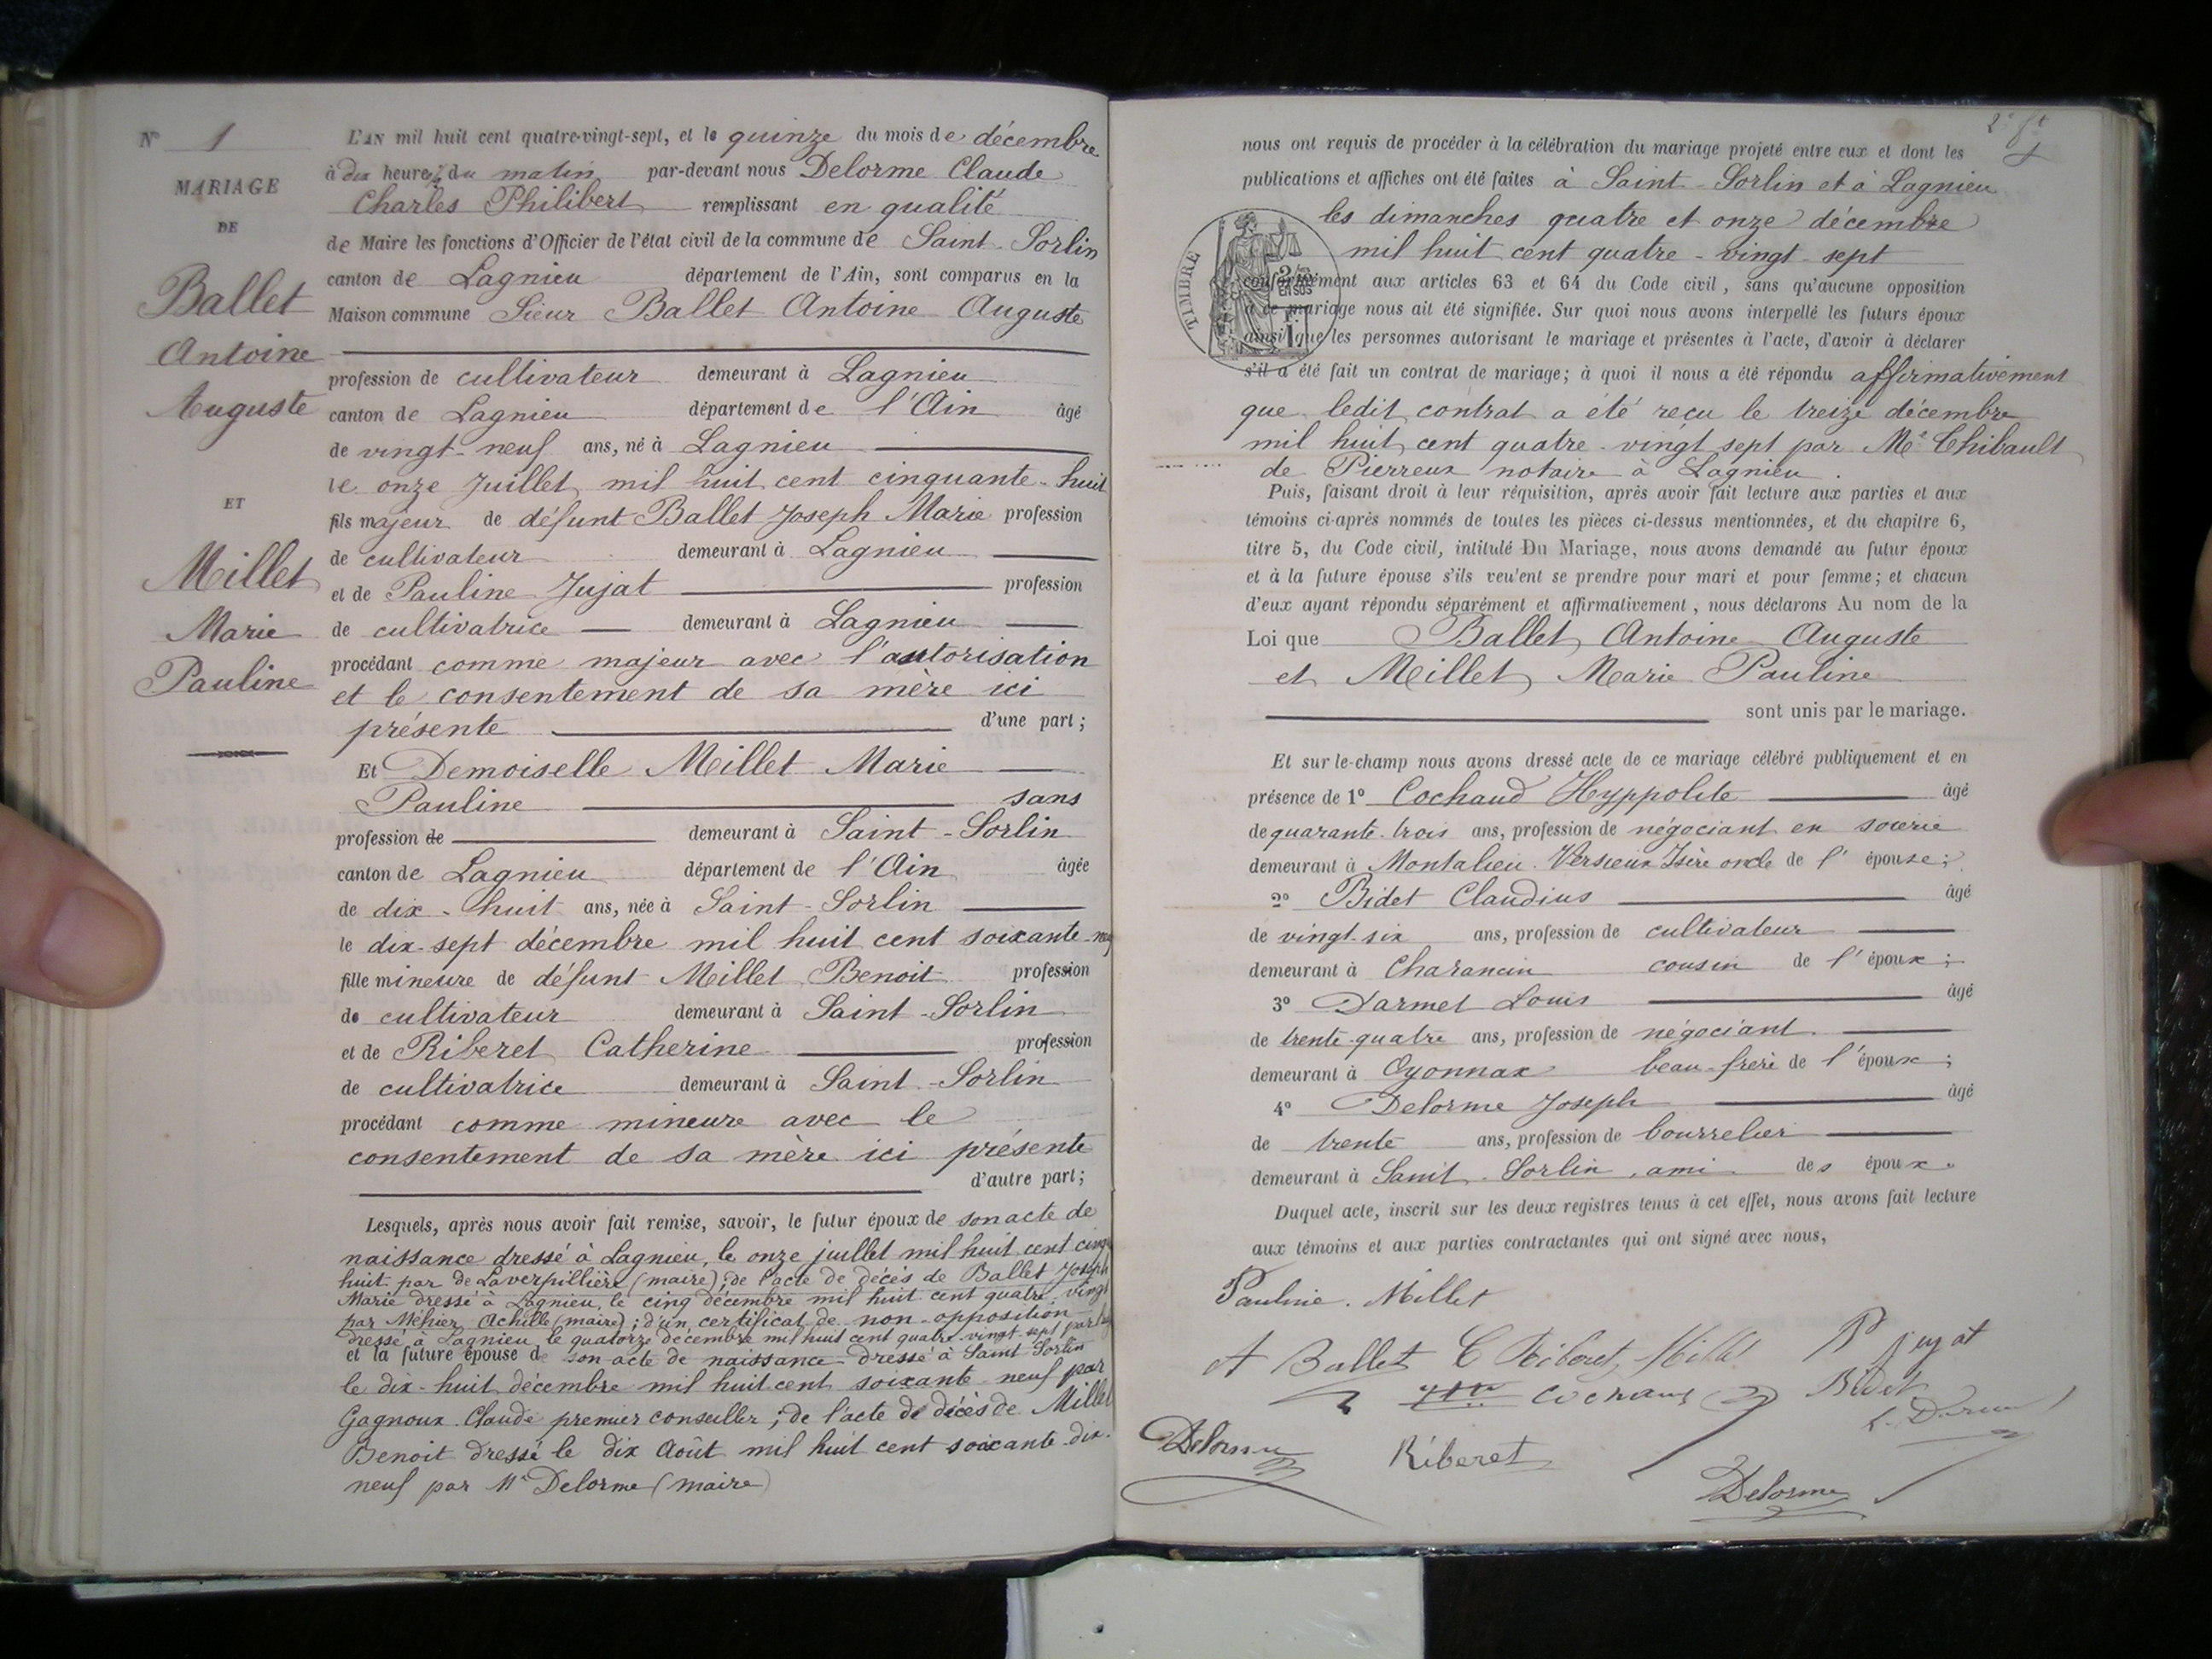 N° 1
MARIAGE
DE
Ballet
Antoine
Auguste
ET
Millet
Marie
Pauline
L'AN mil huit cent quatre-vingt-sept, et le quinze du mois de décembre
à dix heures du matin par-devant nous Delorme Claude
Charles Philibert remplissant en qualité
de Maire les fonctions d'Officier de l'état civil de la commune de Saint-Sorlin
canton de Lagnieu département de l'Ain, sont comparus en la
Maison commune Sieur Ballet Antoine Auguste
profession de cultivateur demeurant à Lagnieu
canton de Lagnieu département de l'Ain âgé
de vingt-neuf ans, né à Lagnieu
le onze Juillet mil huit cent cinquante-huit
fils majeur de défunt Ballet Joseph Marie profession
de cultivateur demeurant à Lagnieu
et de Pauline Jujat profession
de cultivatrice demeurant à Lagnieu
procédant comme majeur avec l'autorisation
et le consentement de sa mère ici
présente d'une part;
Et Demoiselle Millet Marie
Pauline sans
profession de demeurant à Saint-Sorlin
canton de Lagnieu département de l'Ain âgée
de dix-huit ans, née à Saint-Sorlin
le dix-sept décembre mil huit cent soixante-neuf
fille mineure de défunt Millet Benoit profession
de cultivateur demeurant à Saint-Sorlin
et de Riberet Catherine profession
de cultivatrice demeurant à Saint-Sorlin
procédant comme mineure avec le
consentement de sa mère ici présente
d'autre part;
Lesquels, après nous avoir fait remise, savoir, le futur époux de son acte de
naissance dressé à Lagnieu, le onze juillet mil huit cent cinq
huit par de Laverpillière (maire); de l'acte de décès de Ballet Joseph
Marie dressé à Lagnieu, le cinq décembre mil huit cent quatre vingt
par Méhier Achille (maire); d'un certificat de non-opposition
dressé à Lagnieu le quatorze décembre mil huit cent quatre-vingt-sept par
et la future épouse de son acte de naissance dressé à Saint Sorlin
le dix-huit décembre mil huit cent soixante-neuf par
Gagnoux Claude premier conseiller; de l'acte de décès de Millet
Benoit dressé le dix Août mil huit cent soixante-dix-
neuf par Mr Delorme (maire)
nous ont requis de procéder à la célébration du mariage projeté entre eux et dont les
publications et affiches ont été faites à Saint-Sorlin et à Lagnieu
les dimanches quatre et onze décembre
mil huit cent quatre-vingt-sept
TIMBRE
conformément aux articles 63 et 64 du Code civil, sans qu'aucune opposition
à ce mariage nous ait été signifiée. Sur quoi nous avons interpellé les futurs époux
ainsi que les personnes autorisant le mariage et présentes à l'acte, d'avoir à déclarer
s'il a été fait un contrat de mariage; à quoi il nous a été répondu affirmativement
que ledit contrat a été reçu le treize décembre
mil huit cent quatre-vingt sept par Me Thibault
de Pierreux notaire à Lagnieu.
Puis, faisant droit à leur réquisition, après avoir fait lecture aux parties et aux
témoins ci-après nommés de toutes les pièces ci-dessus mentionnées, et du chapitre 6,
titre 5, du Code civil, intitulé Du Mariage, nous avons demandé au futur époux
et à la future épouse s'ils veulent se prendre pour mari et pour femme; et chacun
d'eux ayant répondu séparément et affirmativement, nous déclarons Au nom de la
Loi que Ballet Antoine Auguste
et Millet Marie Pauline
sont unis par le mariage.
Et sur-le-champ nous avons dressé acte de ce mariage célébré publiquement et en
présence de 1° Cochaud Hyppolite âgé
de quarante-trois ans, profession de négociant en soierie
demeurant à Montalieu Versieux Isère oncle de l'épouse;
2° Bidet Claudius âgé
de vingt-six ans, profession de cultivateur
demeurant à Charancin cousin de l'époux;
3° Darmet Louis âgé
de trente-quatre ans, profession de négociant
demeurant à Oyonnax beau-frère de l'époux;
4° Delorme Joseph âgé
de trente ans, profession de bourrelier
demeurant à Saint-Sorlin, ami des époux.
Duquel acte, inscrit sur les deux registres tenus à cet effet, nous avons fait lecture
aux témoins et aux parties contractantes qui ont signé avec nous,
Pauline Millet
A Ballet C Riberet Millet P jujat
Cochaud Bidet
Delorme Riberet Delorme